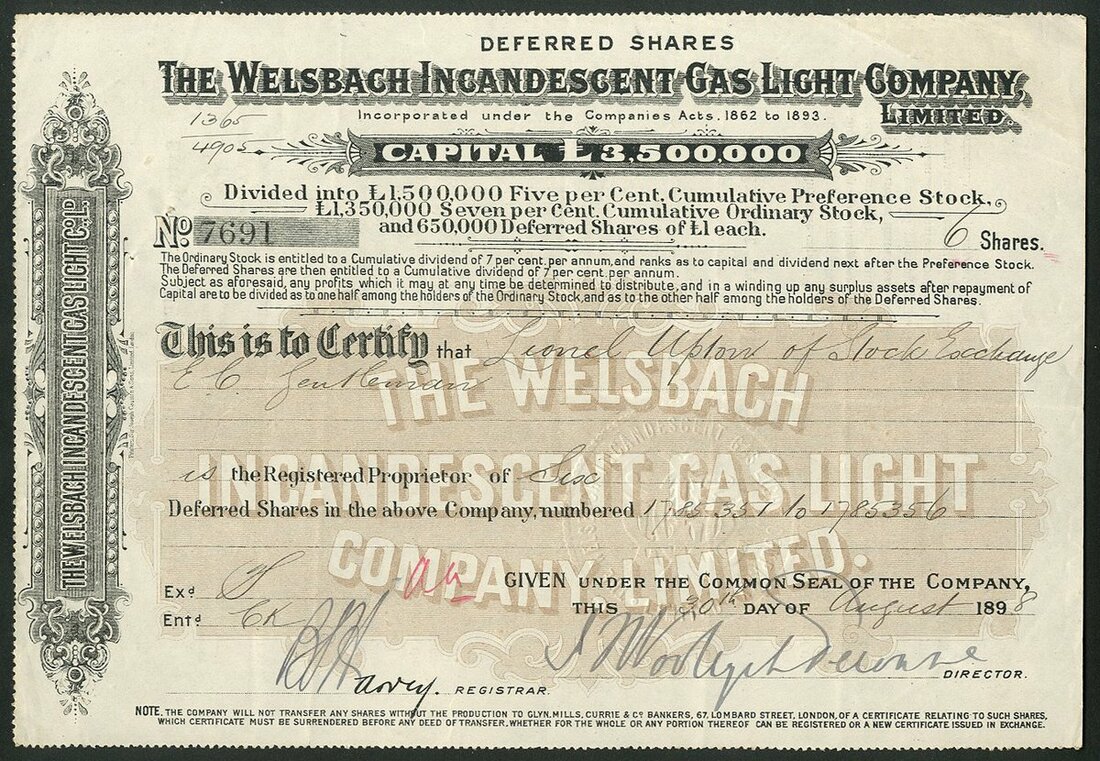 DEFERRED SHARES
THE WELSBACH INCANDESCENT GAS LIGHT COMPANY,
LIMITED.
1365
4905
Incorporated under the Companies Acts. 1862 to 1893.
CAPITAL £3,500,000
Divided into £1,500,000 Five per Cent. Cumulative Preference Stock,
£1,350,000 Seven per Cent. Cumulative Ordinary Stock,
and 650,000 Deferred Shares of £1 each.
No. 7691
6 Shares.
The Ordinary Stock is entitled to a Cumulative dividend of 7 per cent. per annum, and ranks as to capital and dividend next after the Preference Stock.
The Deferred Shares are then entitled to a Cumulative dividend of 7 per cent. per annum.
Subject as aforesaid, any profits which it may at any time be determined to distribute, and in a winding up any surplus assets after repayment of
Capital are to be divided as to one half among the holders of the Ordinary Stock, and as to the other half among the holders of the Deferred Shares.
This is to Certify that Lionel Upton of Stock Exchange
E C Gentleman
THE WELSBACH
INCANDESCENT GAS LIGHT
COMPANY, LIMITED.
is the Registered Proprietor of Six
Deferred Shares in the above Company, numbered 1785351 to 1785356
GIVEN UNDER THE COMMON SEAL OF THE COMPANY,
THIS 30th DAY OF August 1898
Exd
Entd CK
Harvey. REGISTRAR.
DIRECTOR.
NOTE. THE COMPANY WILL NOT TRANSFER ANY SHARES WITHOUT THE PRODUCTION TO GLYN, MILLS, CURRIE & Co BANKERS, 67, LOMBARD STREET, LONDON, OF A CERTIFICATE RELATING TO SUCH SHARES,
WHICH CERTIFICATE MUST BE SURRENDERED BEFORE ANY DEED OF TRANSFER, WHETHER FOR THE WHOLE OR ANY PORTION THEREOF CAN BE REGISTERED OR A NEW CERTIFICATE ISSUED IN EXCHANGE.
THE WELSBACH INCANDESCENT GAS LIGHT Co. LD.